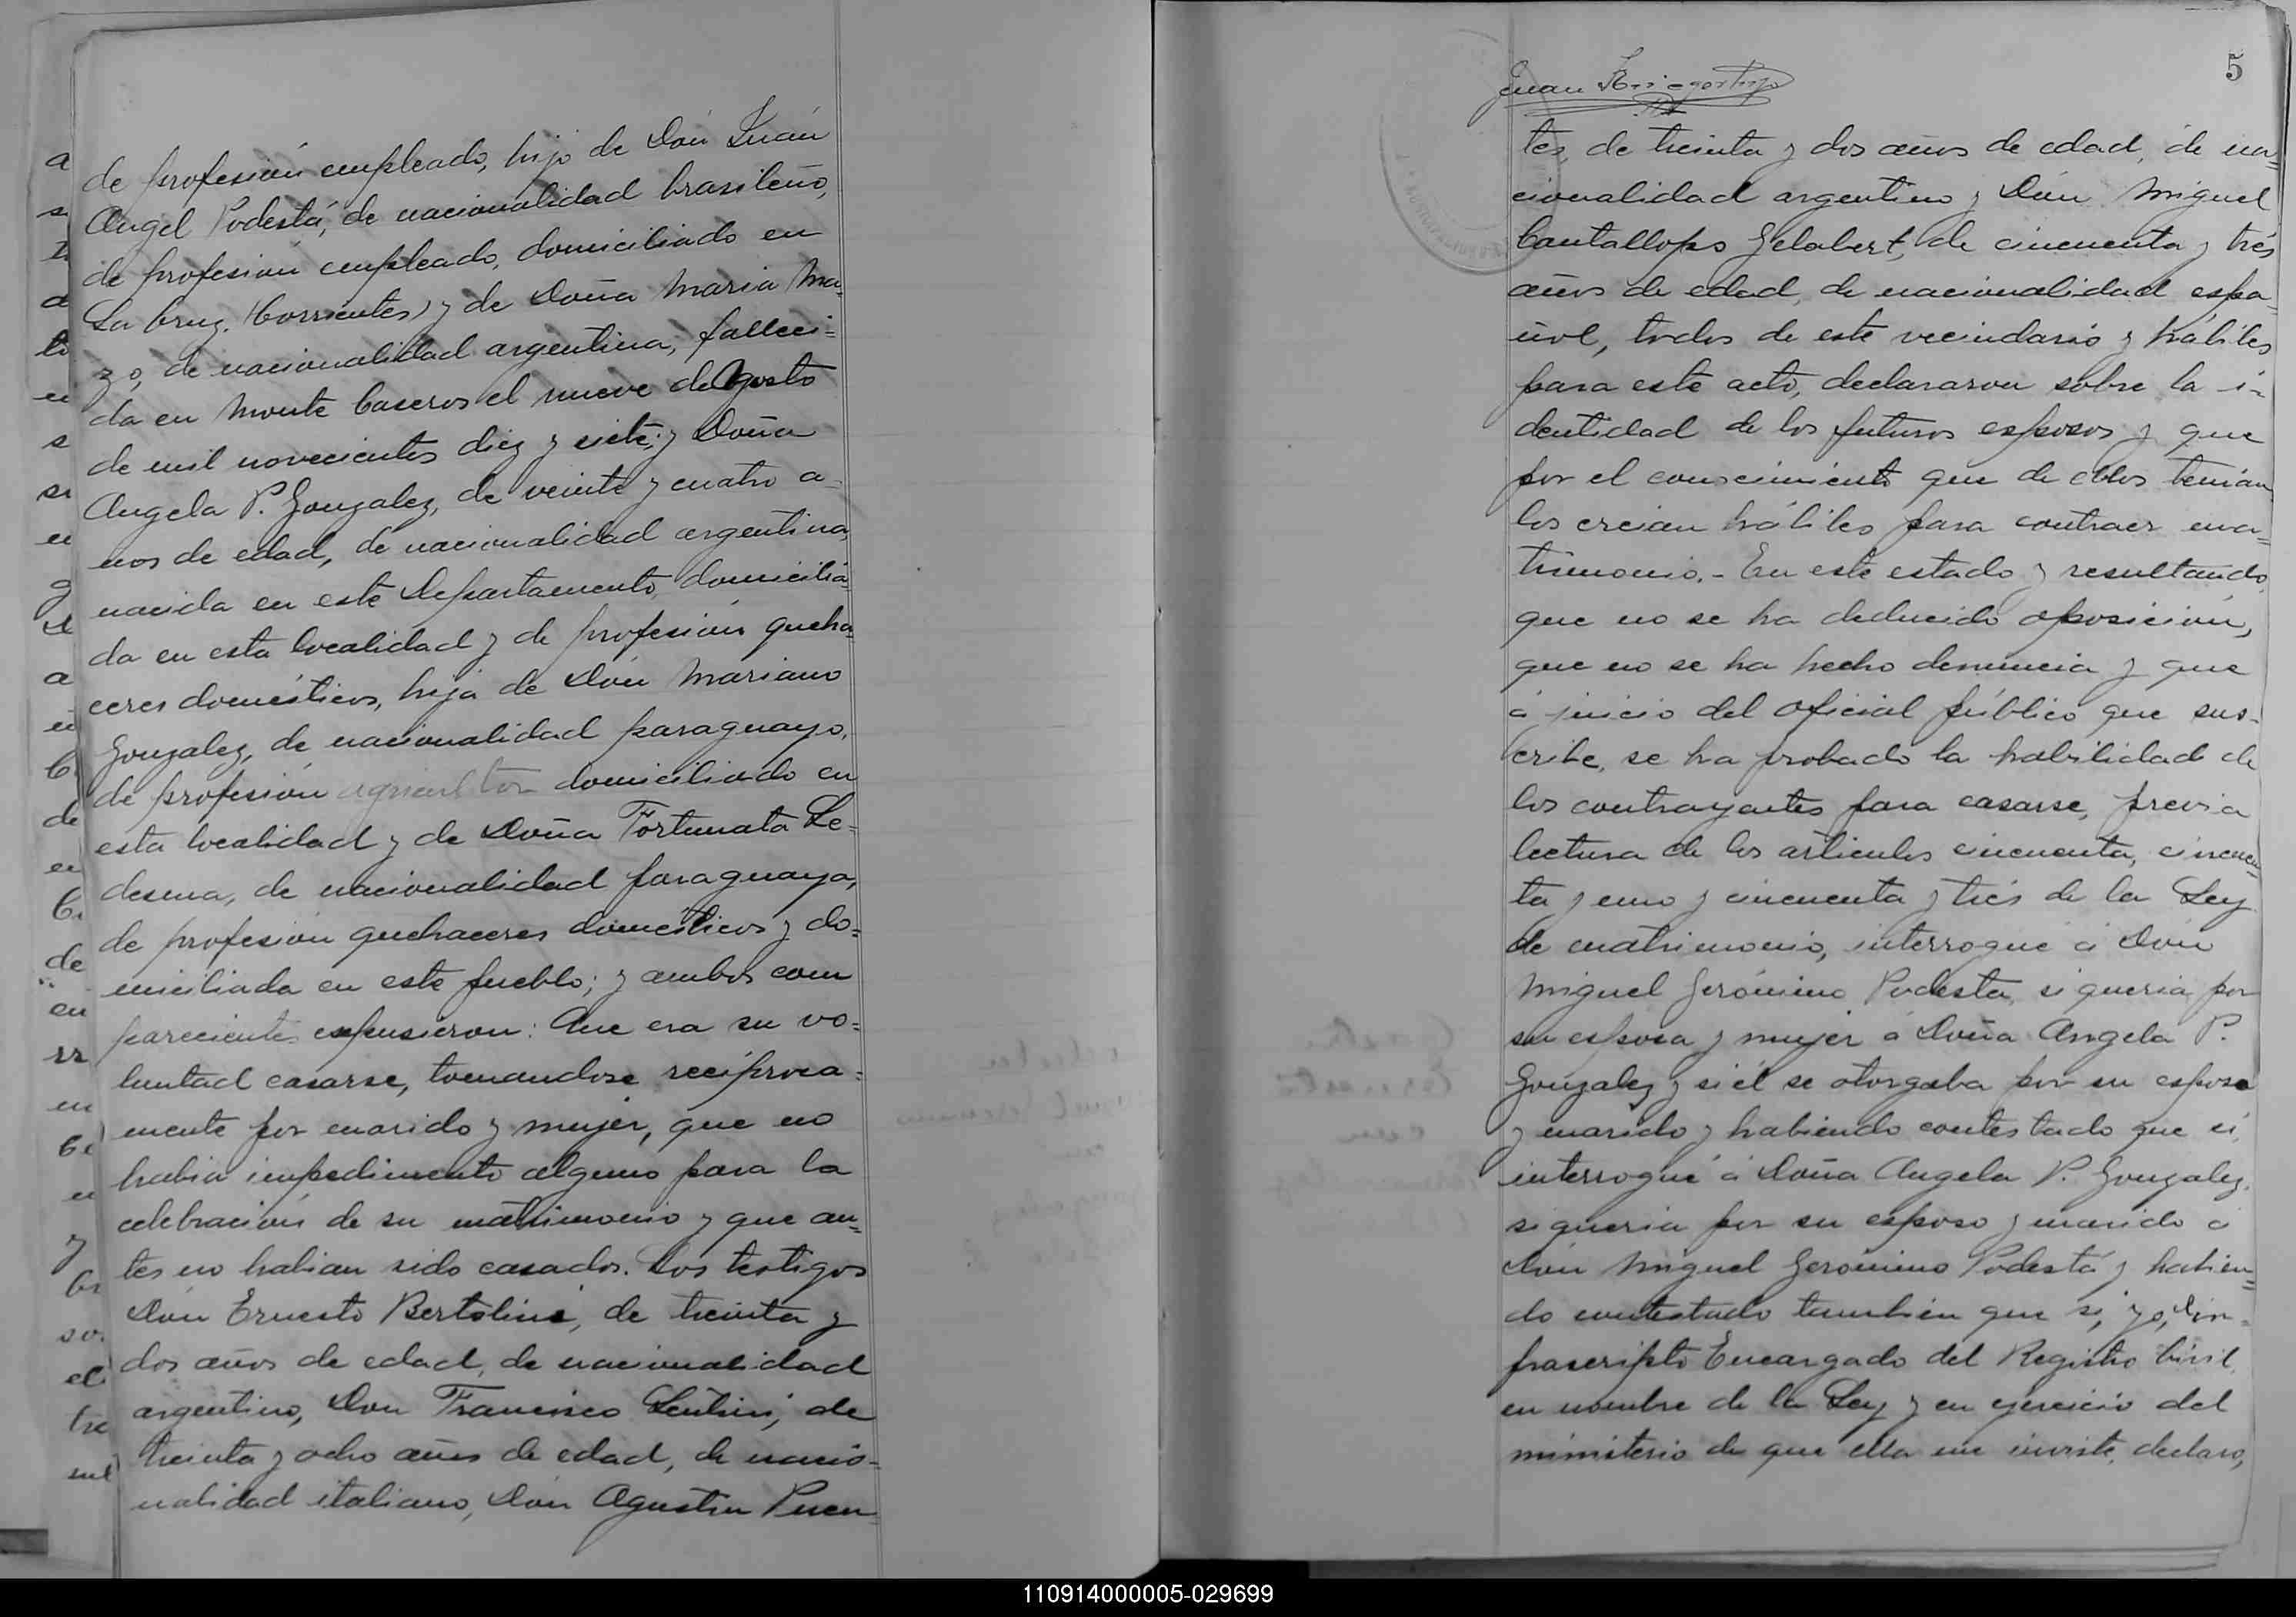 de profesión empleado, hijo de Don Juan
Angel Podestá, de nacionalidad brasileño,
de profesión empleado, domiciliado en
La Cruz (Corrientes) y de Doña Maria Ma-
zo, de nacionalidad argentina, falleci-
da en Monte Caseros el nueve de Agosto
de mil novecientos diez y siete; y Doña
Angela P. Gonzalez, de veinte y cuatro a-
ños de edad, de nacionalidad argentina,
nacida en este Departamento, domicilia-
da en esta localidad y de profesión queha-
ceres domésticos, hija de Don Mariano
Gonzalez, de nacionalidad paraguayo,
de profesión agricultor domiciliado en
esta localidad y de Doña Fortunata Le-
desma, de nacionalidad paraguaya,
de profesión quehaceres domésticos y do-
miciliada en este pueblo; y ambos com
parecientes expusieron: Que era su vo-
luntad casarse, tomandose recíproca-
mente por marido y mujer, que no
habia impedimento alguno para la
celebración de su matrimonio y que an-
tes no habian sido casados. Los testigos
Don Ernesto Bertolini, de treinta y
dos años de edad, de nacionalidad
argentino, Don Francisco Lentini, de
treinta y ocho años de edad, de nacio-
nalidad italiano, Don Agustin Puen-
5
Juan
tes, de treinta y dos años de edad, de na-
cionalidad argentino y Don Miguel
Cantallops Gelabert, de cincuenta y tres
años de edad, de nacionalidad espa-
ñol, todos de este vecindario y hábiles
para este acto, declararon sobre la i-
dentidad de los futuros esposos y que
por el conocimiento que de ellos tenian
los creian hábiles para contraer ma-
trimonio.- En este estado y resultando
que no se ha deducido oposición,
que no se ha hecho denuncia y que
á juicio del oficial público que sus-
cribe, se ha probado la habilidad de
los contrayentes para casarse, previa
lectura de los articulos cincuenta, cincuen-
ta y uno y cincuenta y tres de la Ley
de matrimonio, interrogué á Don
Miguel Gerónimo Podesta, si queria por
su esposa y mujer á Doña Angela P.
Gonzalez y si él se otorgaba por su esposo
y marido y habiendo contestado que si,
interrogué á Doña Angela P. Gonzalez,
si queria por su esposo y marido á
Don Miguel Gerónimo Podestá y habien-
do contestado tambien que si, yo, el in-
frascripto Encargado del Registro Civil,
en nombre de la Ley y en ejercicio del
ministerio de que ella me inviste, declaro,
110914000005-029699